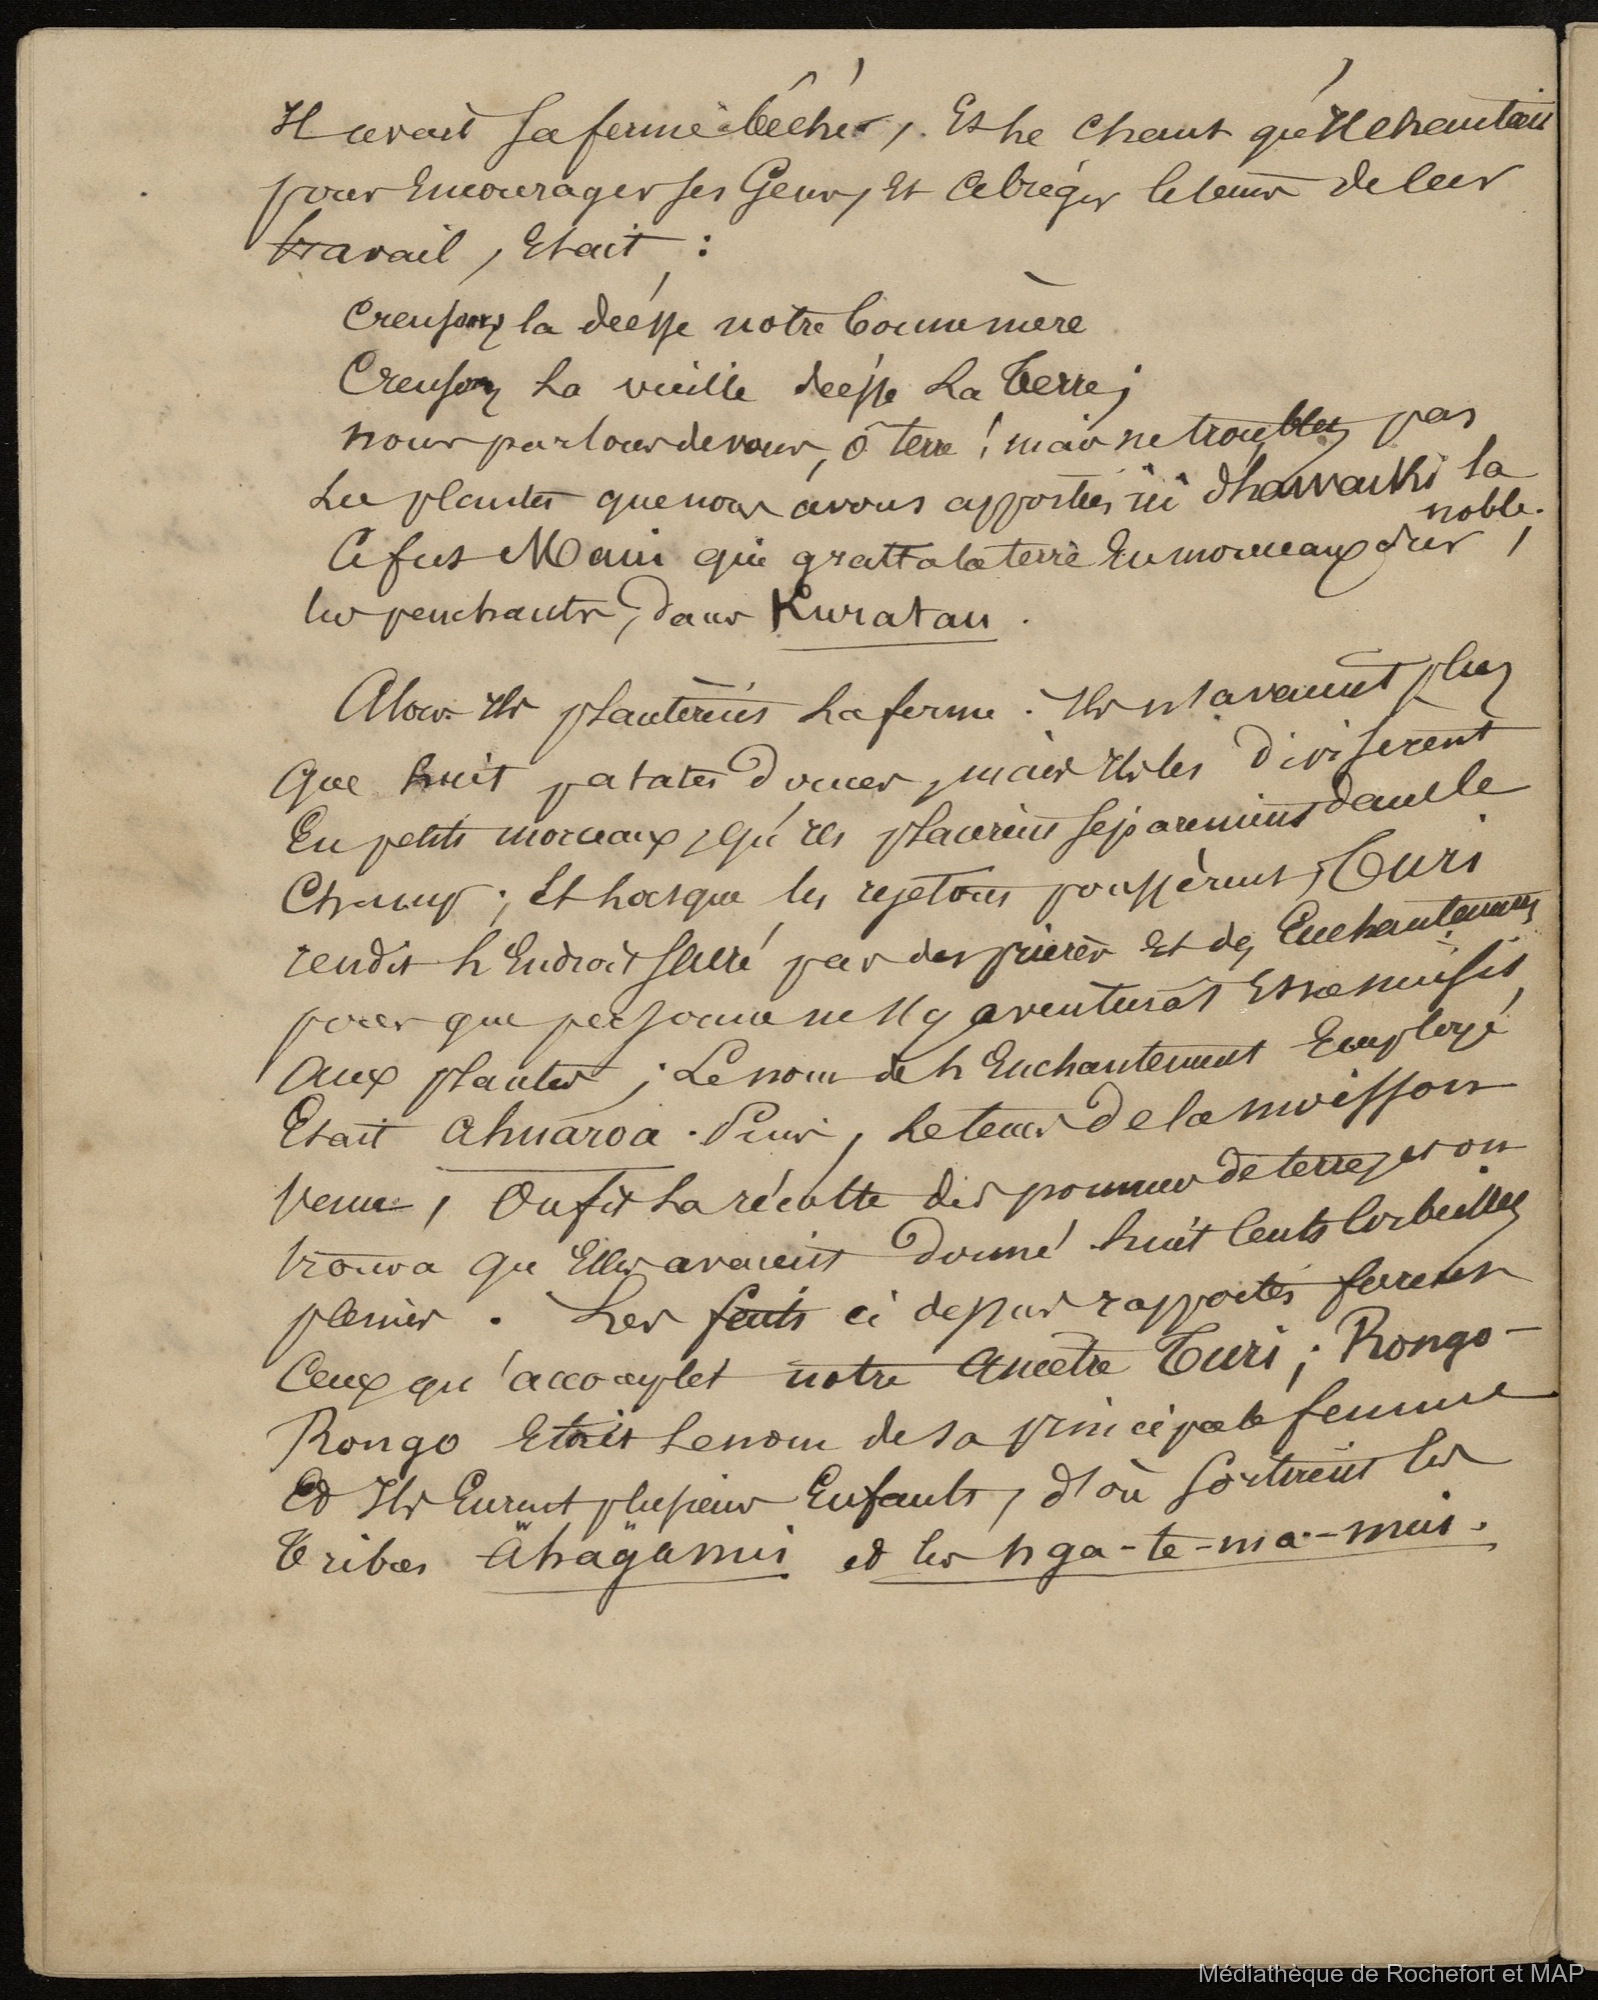 Il avait sa ferme à bêcher, Et le chant qu'Il chantait
pour Encourager ses Gens, Et abréger le tems de leur
travail, Etait :
Creusons la déesse notre bonne mère
Creusons La vieille déesse La Terre ;
nous parlons de vous, ô terre ! mais ne troublez pas
Les plantes que nous avons apportées ici d'hawaiki la
noble.
Ce fut Maui qui gratta la terre En morceaux sur,
les penchants, dans Kuratau.
Alors Ils plantèrent La ferme. Ils n'avaient plus
que huit patates douces, mais Ils les divisèrent
En petits morceaux, qu'ils placèrent séparément dans le
Champ ; Et Lorsque les rejetons poussèrent, Turi
rendit L'Endroit sacré par des prières Et des Enchantements
pour que personne ne s'y aventurât Et ne nuisit
Aux plantes ; Le nom de L'Enchantement Employé
Etait Ahuaroa. Puis, Le tems De la moisson
venu, On fit La récolte des pommes de terre, et on
trouva qu'Elles avaient donné huit Cents Corbeilles
pleines. Les faits ci dessus rapportés furent
Ceux qu'accomplit notre Ancêtre Turi ; Rongo-
Rongo Etait Le nom de sa principale femme
Et Ils Eurent plusieurs Enfants, d'où sortirent les
Tribus et les nga-te-ma-mui.
Médiathèque de Rochefort et MAP